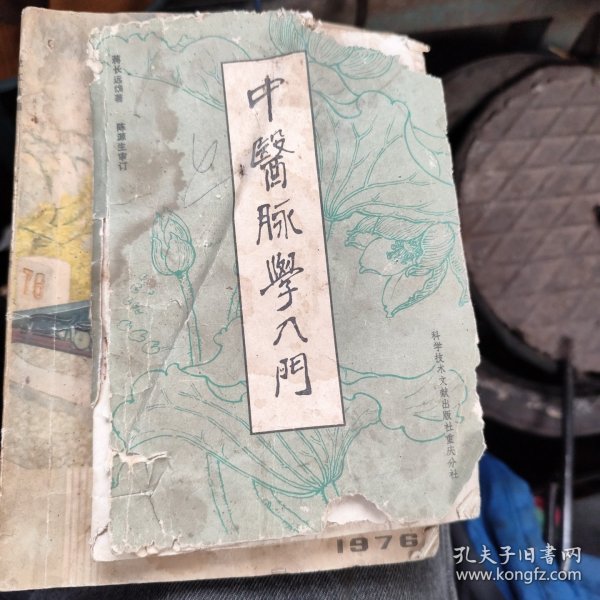 蒋长远编著 陈源生审订
中醫脉學入門
科学技术文献出版社重庆分社
78
1976
孔夫子旧书网
www.kongfz.com